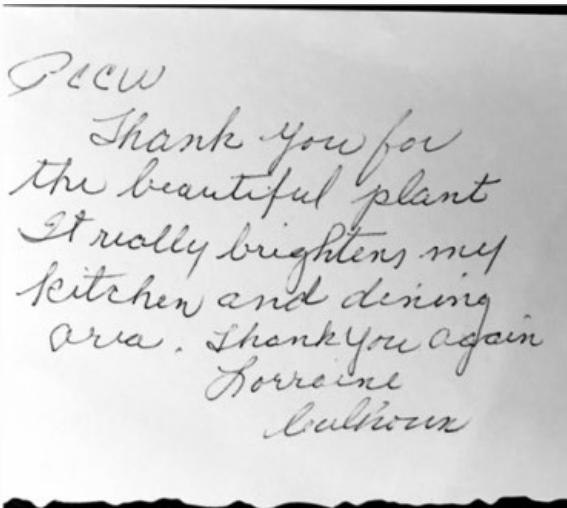 PCCW
Thank you for
the beautiful plant
It really brightens my
kitchen and dining
area. Thank you again
Lorraine
Calhoun